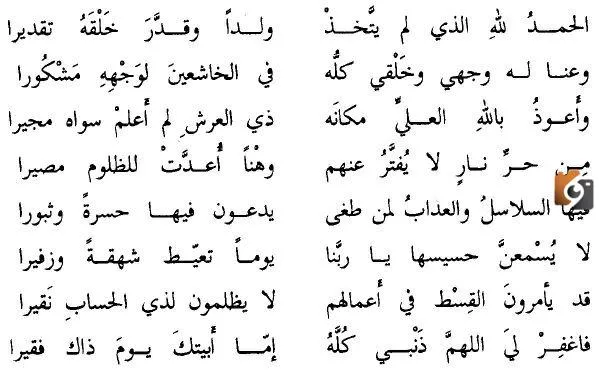 الحمدُ للهِ الذي لم يتَّخذْ ولداً وقدَّرَ خَلْقَهُ تقديرا
وعنا له وجهي وخَلْقي كلُّه في الخاشعينَ لوَجْهِهِ مَشْكُورا
وأعوذُ باللهِ العليِّ مكانَه ذي العرشِ لم أَعلمْ سواه مجيرا
مِن حرِّ نارٍ لا يُفتَّرُ عنهم وهْناً أُعدَّتْ للظلوم مصيرا
فيها السلاسلُ والعذابُ لمن طغى يدعون فيها حسرةً وثبورا
لا يُسْمعنَّ حسيسها يا ربَّنا يوماً تعيّط شهقةً وزفيرا
قد يأمرونَ القِسْط في أعمالهم لا يظلمون لذي الحسابِ نَقيرا
فاغفِرْ ليَ اللهمَّ ذَنْبي كُلَّهُ إمّا أبيتكَ يومَ ذاك فقيرا